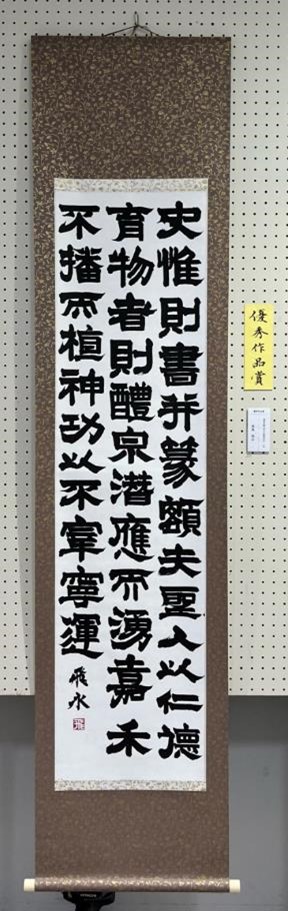 史惟則書并篆額夫聖人以仁德
育物者則醴泉潛應而湧嘉禾
不播而植神功以不宰寧運
飛水
優秀作品賞